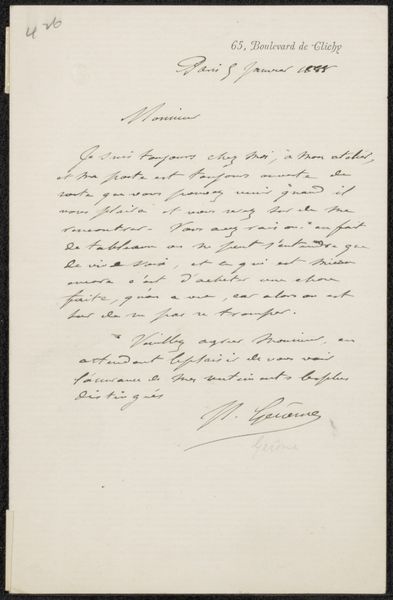 426
65, Boulevard de Clichy
Paris 5 Janvier 1885
Monsieur
Je suis toujours chez moi, à mon atelier,
et ma porte est toujours ouverte de
sorte que vous pouvez venir quand il
vous plaira et vous serez sûr de me
rencontrer. Vous avez raison en fait
de tableaux on ne peut s'entendre que
de vive voix, et ce qui est mieux
encore c'est d'acheter une chose
faite, qu'on a vue, car alors on est
sûr de ne pas se tromper.
Veuillez agréer Monsieur, en
attendant le plaisir de vous voir
l'assurance de mes sentiments les plus
distingués
Gérôme
Gérome